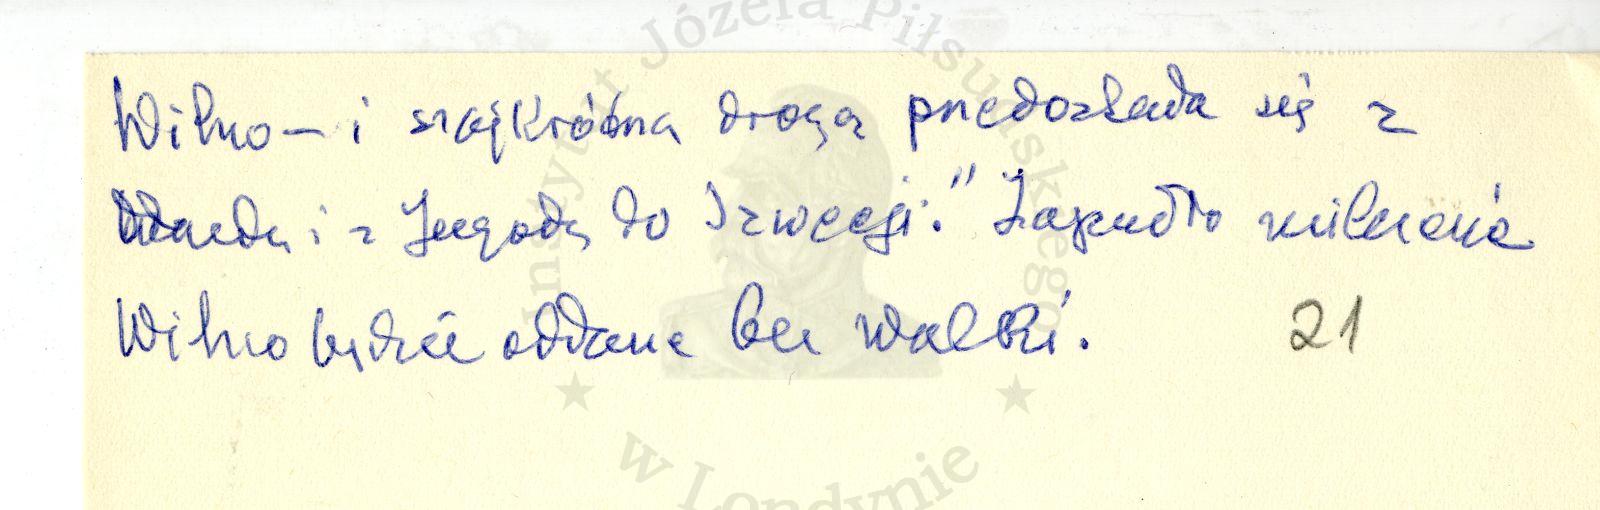 Wilno – i najkrótszą drogą przedostała się z
Wandą i z Jagodą do Szwecji." Zapadło milczenie
Wilno będzie oddane bez walki. 21
Instytut Józefa Piłsudskiego
w Londynie